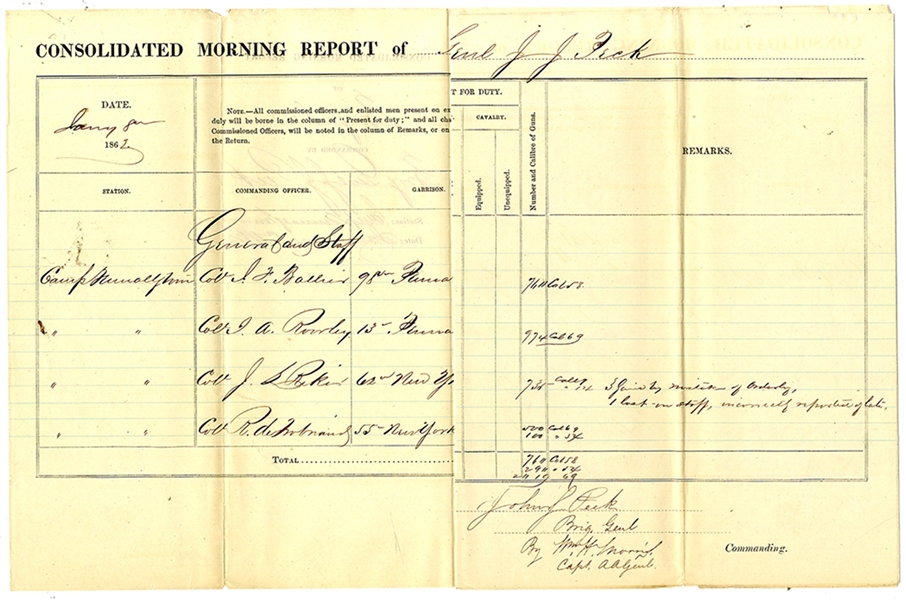 CONSOLIDATED MORNING REPORT of Genl J J Peck
DATE.
Jany 8th
1862
NOTE.—All commissioned officers, and enlisted men present on ex
duly will be borne in the column of "Present for duty;" and all cha
Commissioned Officers, will be noted in the column of Remarks, or on
the Return.
T FOR DUTY.
CAVALRY.
Equipped.
Unequipped.
Number and Calibre of Guns.
REMARKS.
STATION.
COMMANDING OFFICER.
GARRISON.
General and Staff
Camp Col J. F. Ballier 98th Penna 760 Cal 58
" " Col J. A. Rowley 13th Penna 974 Cal 69
" " Col J. L Riker 62nd New Yo Cal 69
1 on staff, incorrectly reported
" " Col R. de Trobriand 55th New York 500 Cal 69
100 " 54
TOTAL 760 Cal 58
" 54
69
John J Peck
Brig. Genl
By Wm H. Morris.
Capt. AAGenl.
Commanding.